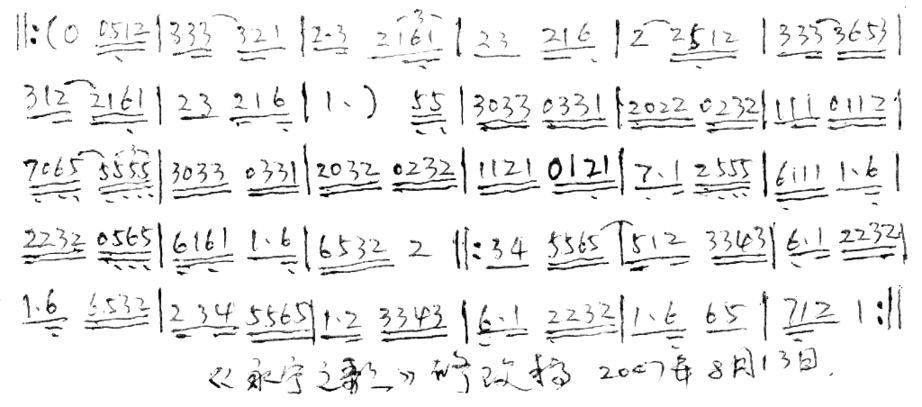 ‖:(0 0512|333 321|2·3 2161|23 216|2 2512|333 3653|
312 2161|23 216|1·) 55|3033 0331|2022 0232|111 0112|
7065 5555|3033 0331|2032 0232|1121 0121|7·1 2555|6111 1·6|
2232 0565|6161 1·6|6532 2‖:34 5565|512 3343|6·1 2232|
1·6 6532|234 5565|1·2 3343|6·1 2232|1·6 65|712 1:‖
《永宁之歌》修改稿 2007年8月13日.